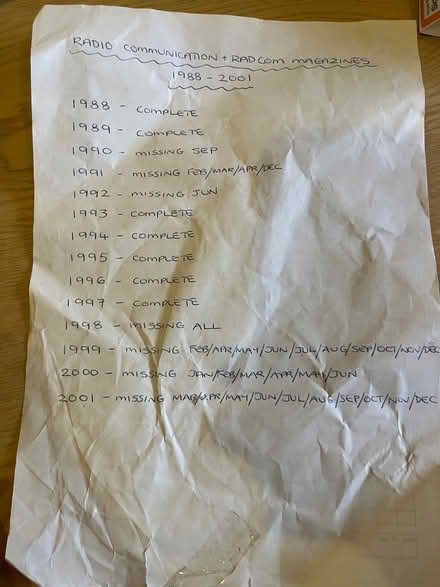 RADIO COMMUNICATION + RADCOM MAGAZINES
1988 - 2001
1988 - COMPLETE
1989 - COMPLETE
1990 - MISSING SEP
1991 - MISSING FEB/MAR/APR/DEC
1992 - MISSING JUN
1993 - COMPLETE
1994 - COMPLETE
1995 - COMPLETE
1996 - COMPLETE
1997 - COMPLETE
1998 - MISSING ALL
1999 - MISSING FEB/APR/MAY/JUN/JUL/AUG/SEP/OCT/NOV/DEC
2000 - MISSING JAN/FEB/MAR/APR/MAY/JUN
2001 - MISSING MAR/APR/MAY/JUN/JUL/AUG/SEP/OCT/NOV/DEC